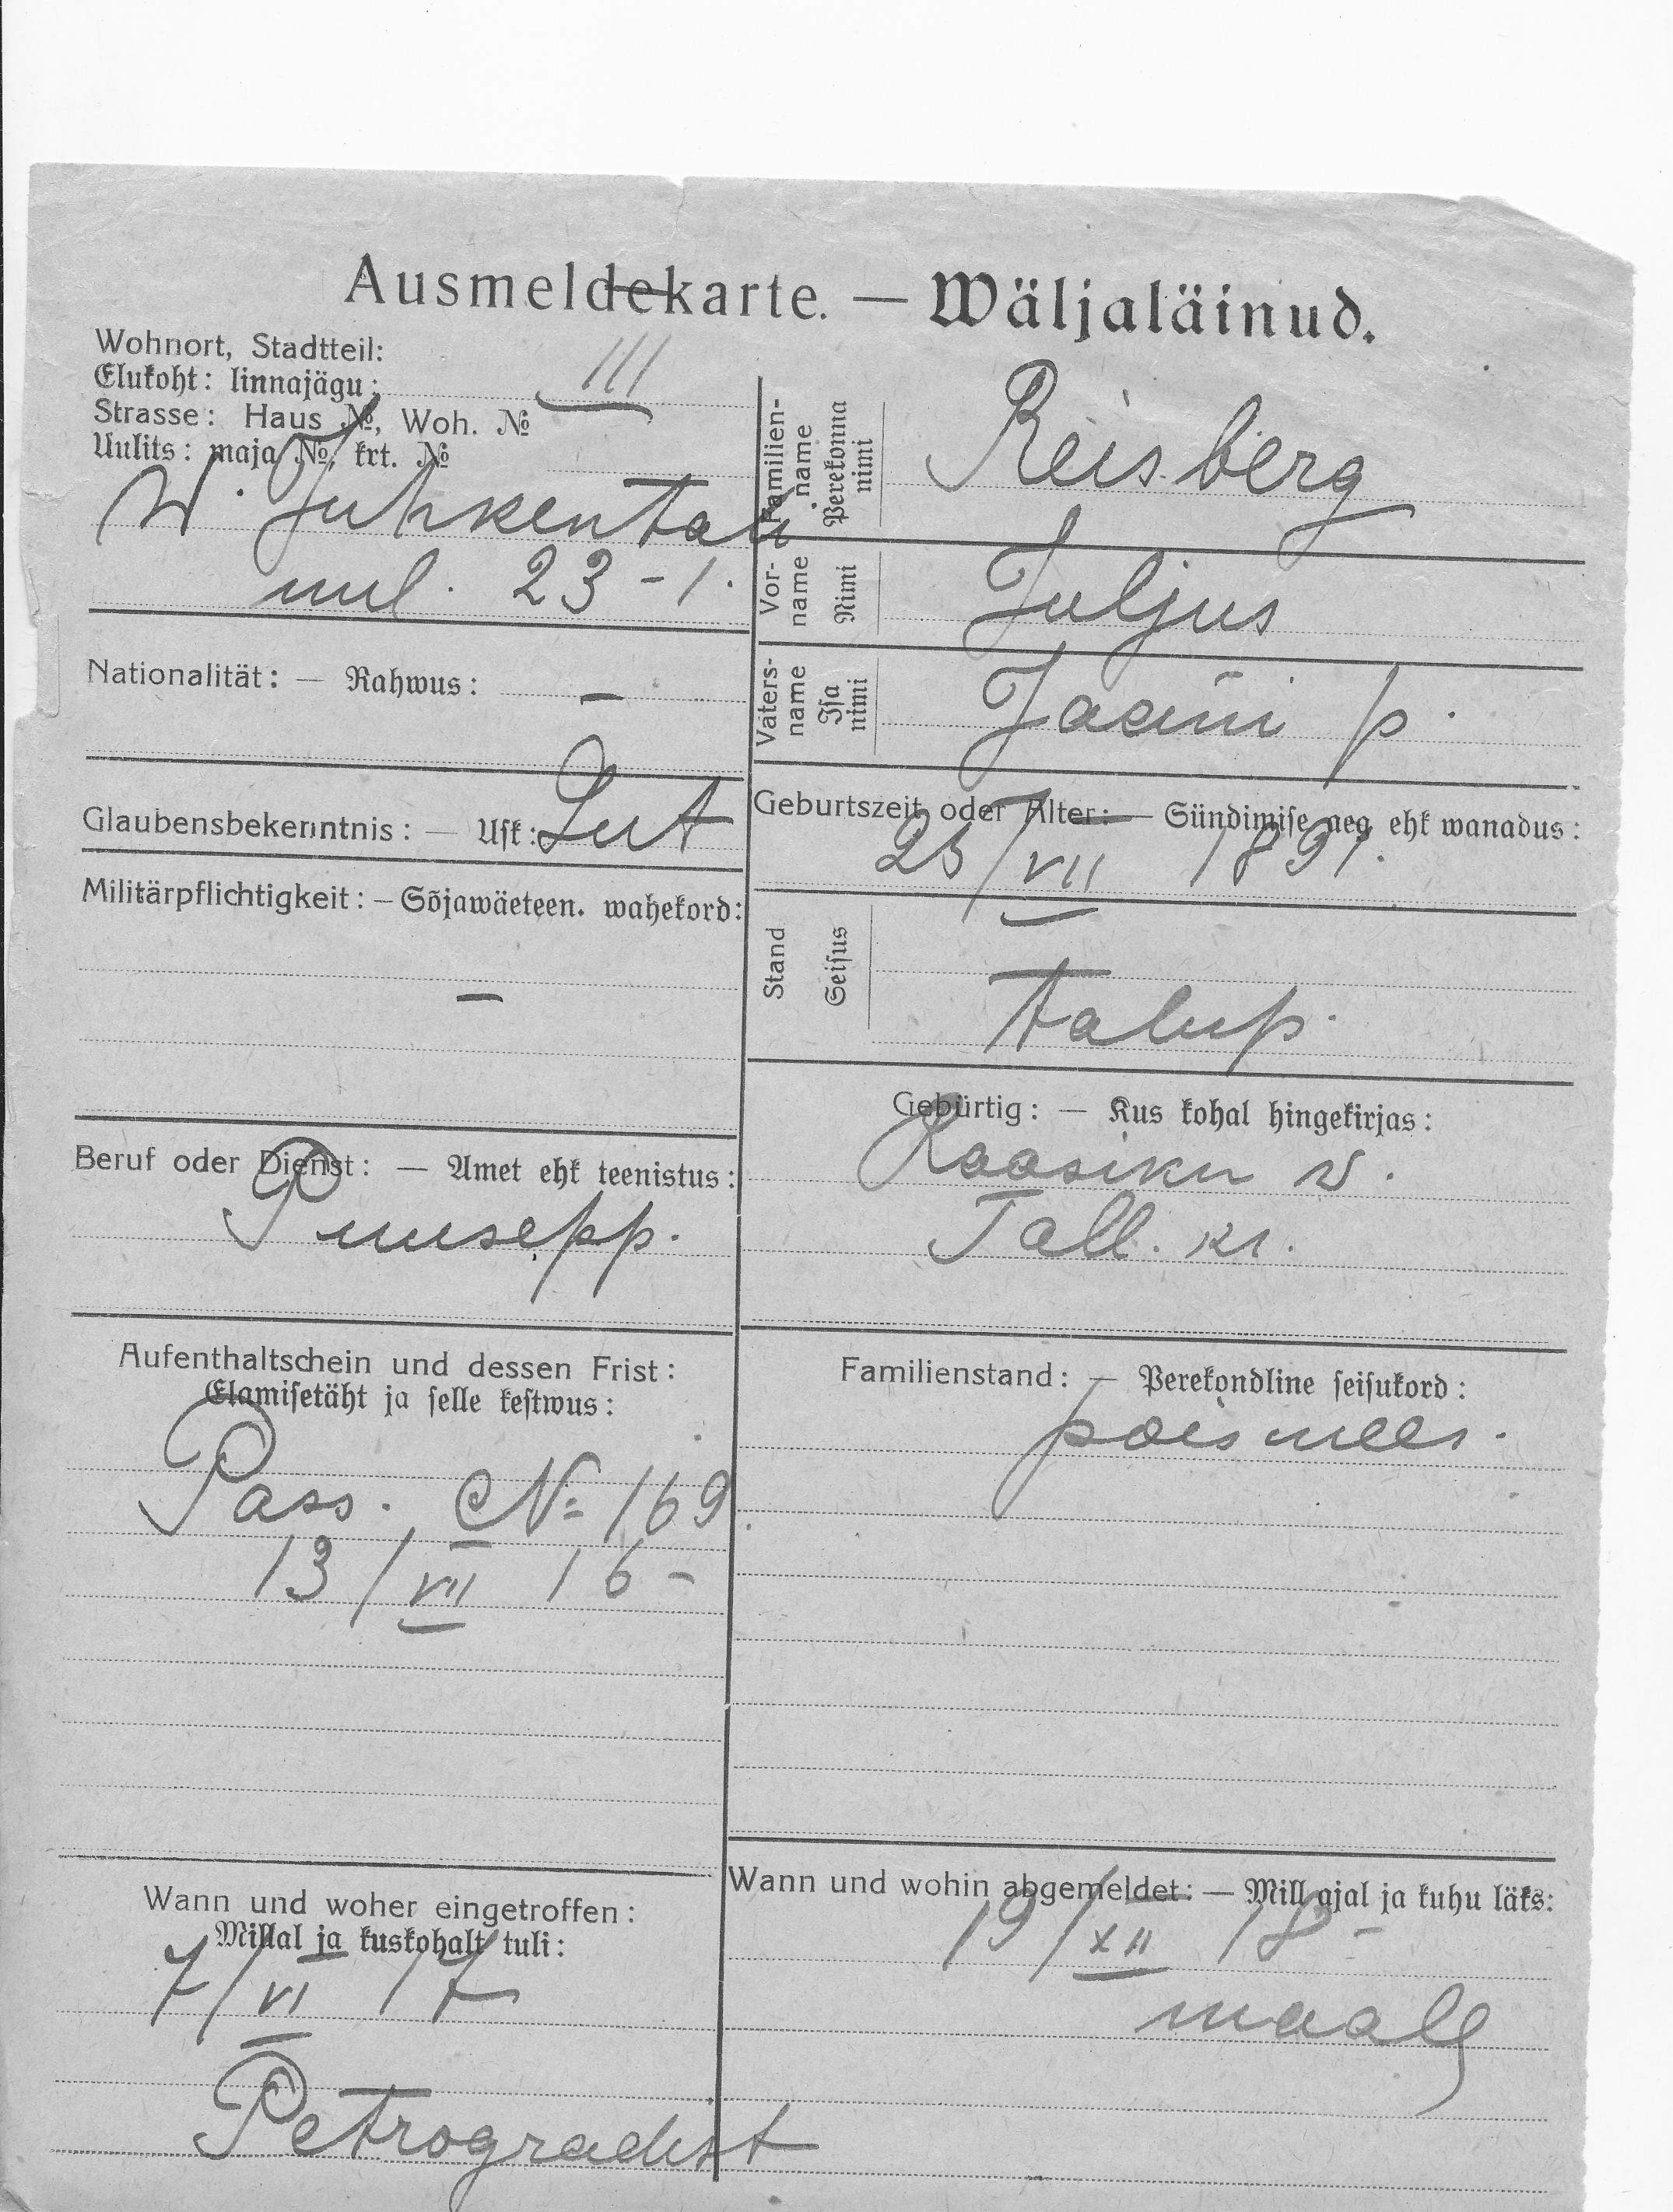 Ausmeldekarte. — Wäljaläinud.
Wohnort, Stadtteil:
Elukoht: linnajägu: III
Strasse: Haus №, Woh. №
Uulits: maja №, krt. №
W. Juhkentali
uul. 23 - 1.
Nationalität: — Rahwus: —
Glaubensbekenntnis: — Usk: Lut
Militärpflichtigkeit: — Sõjawäeteen. wahekord:
—
Beruf oder Dienst: — Amet ehk teenistus:
Puusepp.
Aufenthaltschein und dessen Frist:
Elamisetäht ja selle kestwus:
Pass. № 169
13/VII 16 -
Wann und woher eingetroffen:
Millal ja kuskohalt tuli:
7/VI 17
Petrogradist
Familien-name Perekonna nimi Reisberg
Vor-name Nimi Juljus
Vaters-name Isa nimi Jaani p.
Geburtszeit oder Alter: — Sündimise aeg ehk wanadus:
25/VII 1891.
Stand Seisus
talup.
Gebürtig: — Kus kohal hingekirjas:
Raasiku v.
Tall. kr.
Familienstand: — Perekondline seisukord:
poismees.
Wann und wohin abgemeldet: — Mill ajal ja kuhu läks:
19/XII 18 -
maale